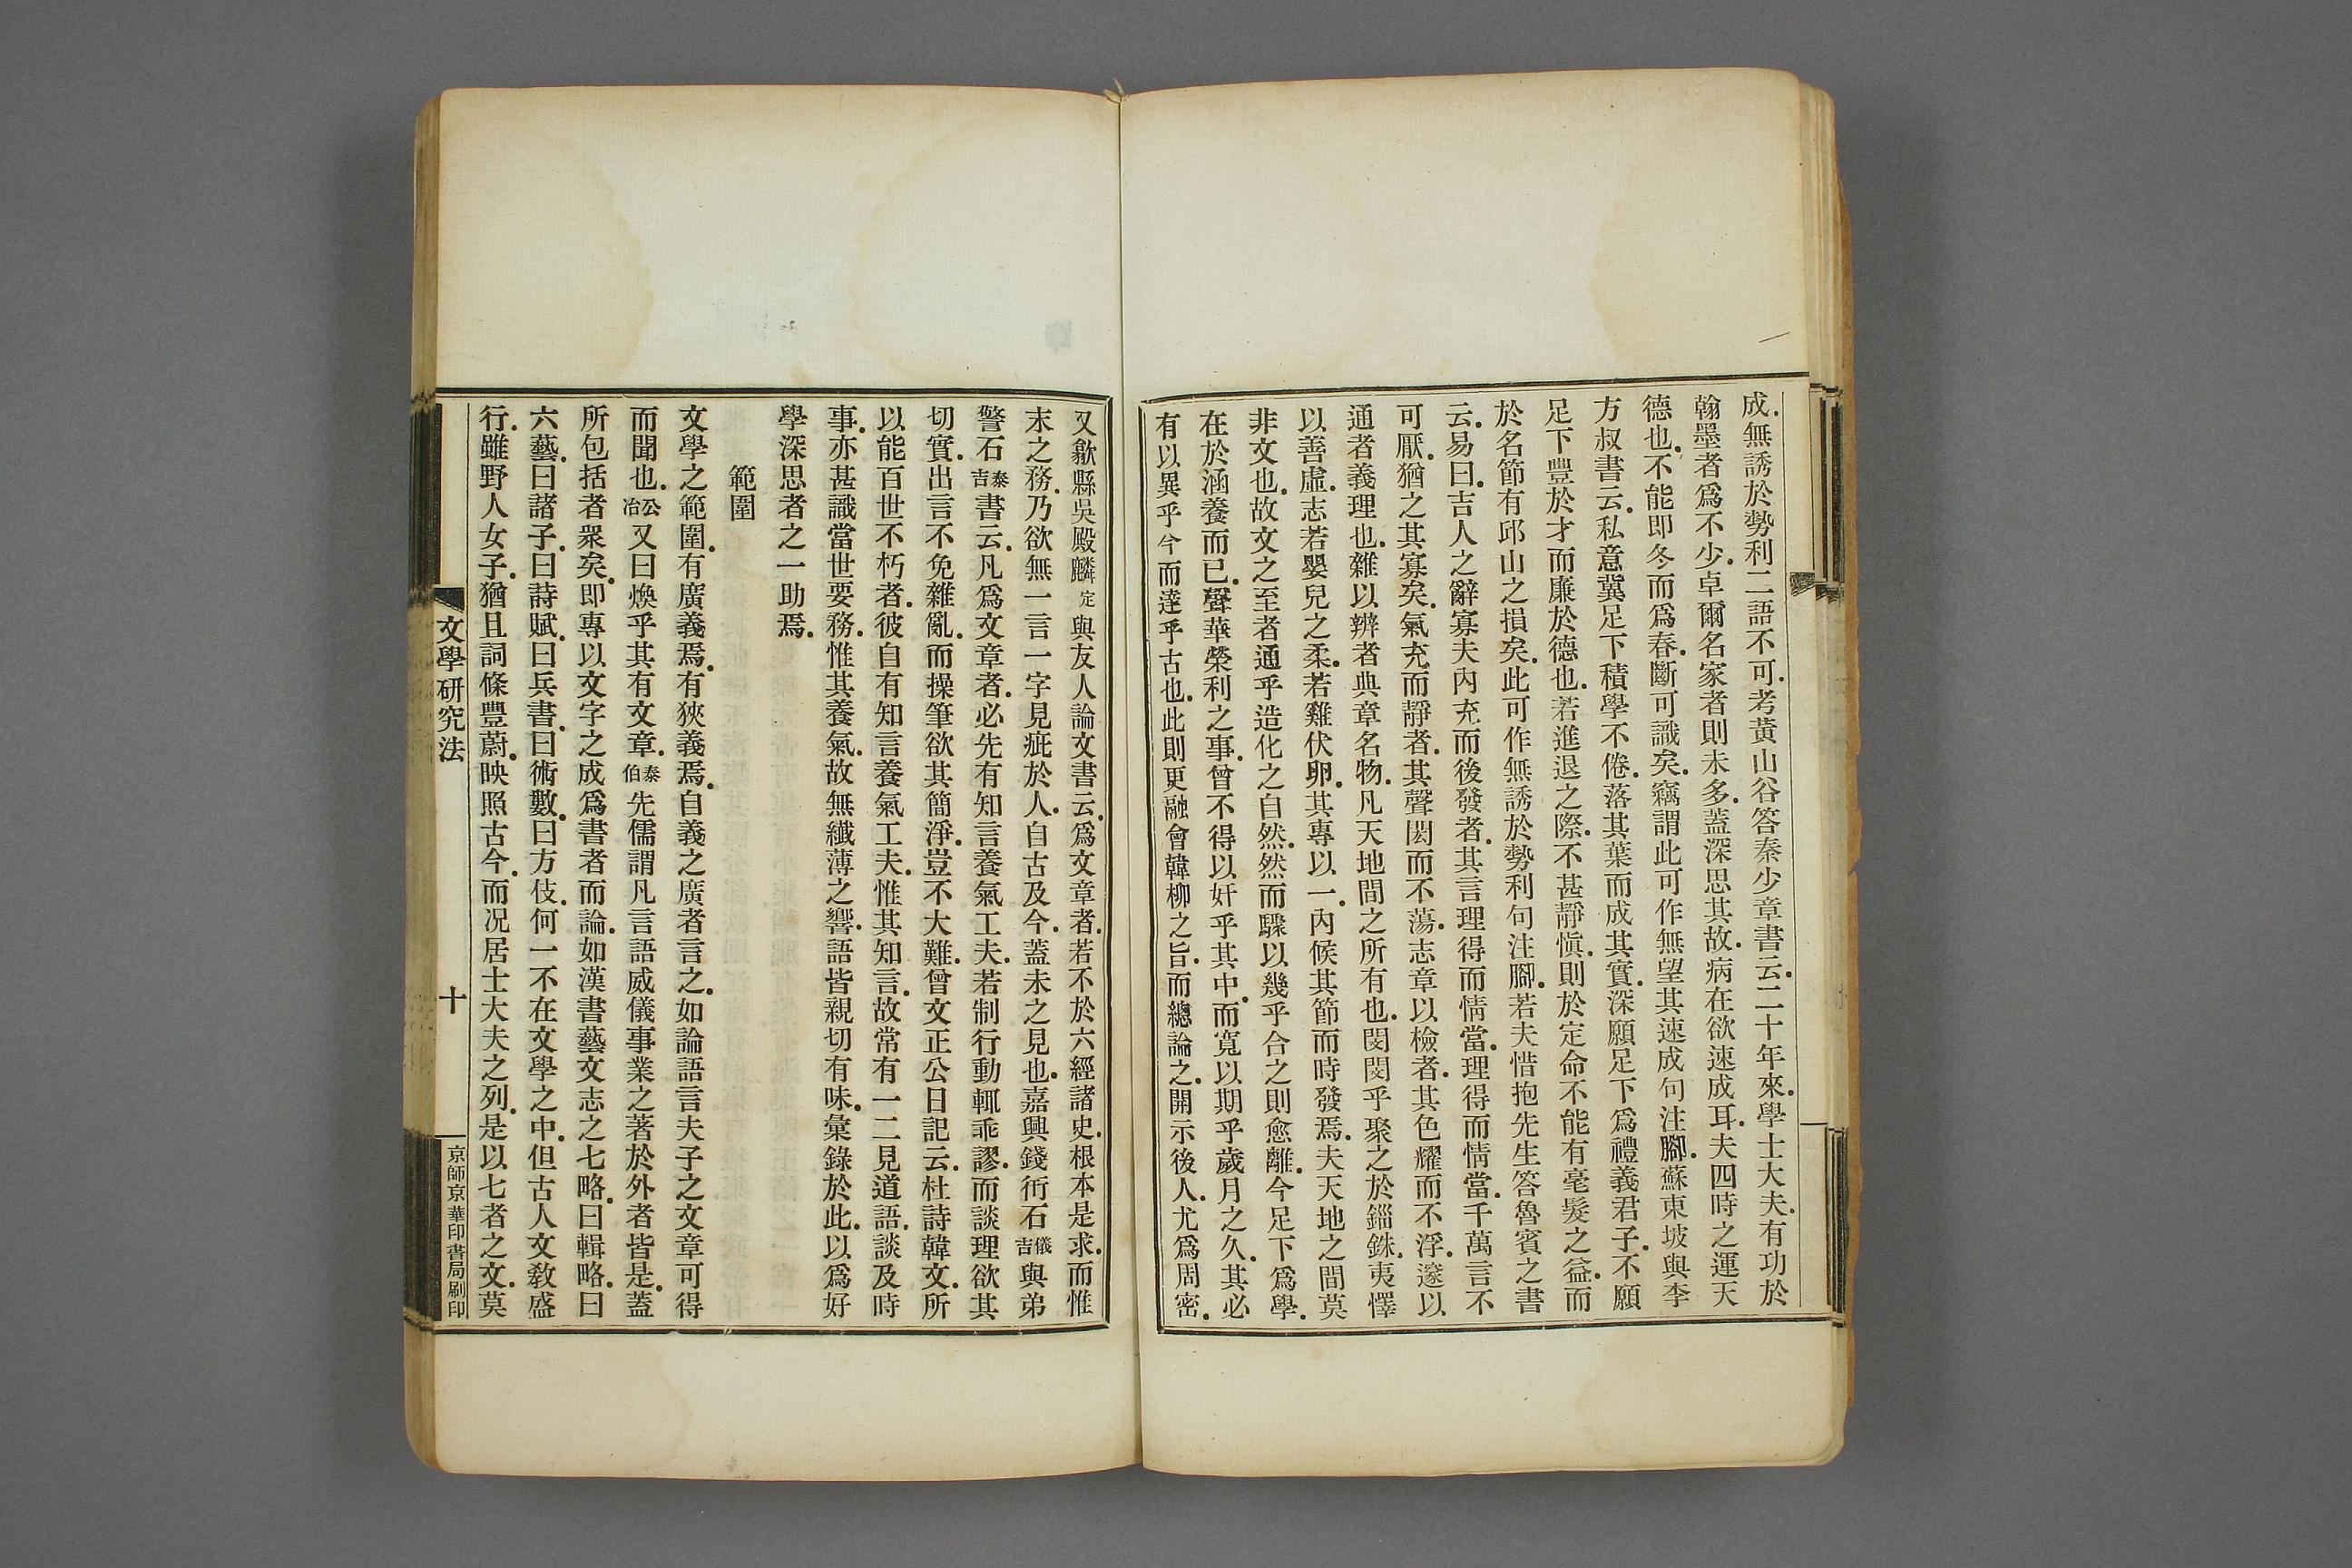 成．無誘於勢利二語不可．考黃山谷答秦少章書云．二十年來．學士大夫．有功於
翰墨者爲不少．卓爾名家者則未多．蓋深思其故．病在欲速成耳．夫四時之運天
德也．不能即冬而爲春．斷可識矣．竊謂此可作無望其速成句注腳．蘇東坡與李
方叔書云．私意冀足下積學不倦．落其葉而成其實．深願足下爲禮義君子．不願
足下豐於才而廉於德也．若進退之際．不甚靜愼．則於定命不能有毫髮之益．而
於名節有邱山之損矣．此可作無誘於勢利句注腳．若夫惜抱先生答魯賓之書
云．易曰．吉人之辭寡夫內充而後發者．其言理得而情當．理得而情當．千萬言不
可厭．猶之其寡矣．氣充而靜者．其聲閎而不蕩．志章以檢者．其色耀而不浮．邃以
通者義理也．雜以辨者典章名物．凡天地間之所有也．閔閔乎聚之於錙銖．夷懌
以善虛．志若嬰兒之柔．若雞伏卵．其專以一．內候其節而時發焉．夫天地之間莫
非文也．故文之至者通乎造化之自然．然而驟以幾乎合之則愈離．今足下爲學．
在於涵養而已．聲華榮利之事．曾不得以奸乎其中．而寬以期乎歲月之久．其必
有以異乎今而達乎古也．此則更融會韓柳之旨．而總論之．開示後人．尤爲周密．
又歙縣吳殿麟定與友人論文書云．爲文章者．若不於六經諸史．根本是求．而惟
末之務．乃欲無一言一字見疵於人．自古及今．蓋未之見也．嘉興錢衎石儀吉與弟
警石泰吉書云．凡爲文章者．必先有知言養氣工夫．若制行動輒乖謬．而談理欲其
切實．出言不免雜亂．而操筆欲其簡淨．豈不大難．曾文正公日記云．杜詩韓文．所
以能百世不朽者．彼自有知言養氣工夫．惟其知言．故常有一二見道語．談及時
事．亦甚識當世要務．惟其養氣．故無纖薄之響．語皆親切有味．彙錄於此．以爲好
學深思者之一助焉．
範圍
文學之範圍．有廣義焉．有狹義焉．自義之廣者言之．如論語言夫子之文章可得
而聞也．公冶又曰煥乎其有文章．泰伯先儒謂凡言語威儀事業之著於外者皆是．蓋
所包括者衆矣．即專以文字之成爲書者而論．如漢書藝文志之七略．曰輯略．曰
六藝．曰諸子．曰詩賦．曰兵書．曰術數．曰方伎．何一不在文學之中．但古人文教盛
行．雖野人女子．猶且詞條豐蔚．映照古今．而况居士大夫之列．是以七者之文．莫
文學研究法
十
京師京華印書局刷印